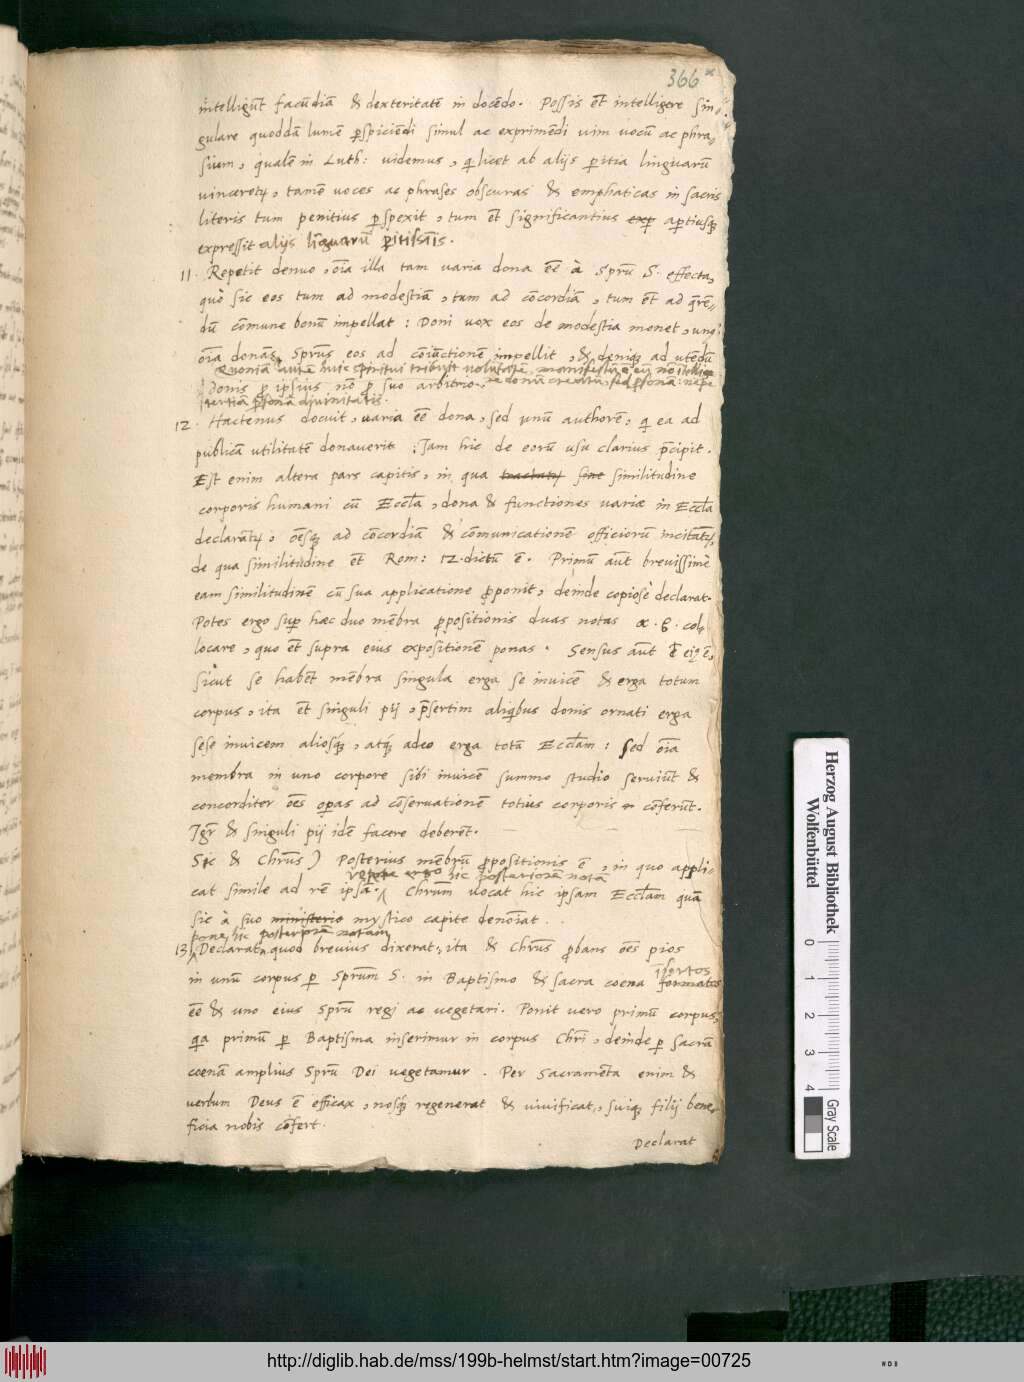 366
intelligūt facūdiā & dexteritatē in docēdo. Possis ēt intelligere sin-
gulare quoddā lumē pspiciēdi simul ac exprimēdi uim uocū ac phra-
sium, qualē in Luth: uidemus, qi licet ab alijs pitia linguarū
uinceretr, tamē uoces ac phrases obscuras & emphaticas in sacris
literis tum penitius pspexit, tum ēt significantius exp aptiusq
expressit alijs līguarū pitissīis.
11. Repetit denuo, oīa illa tam uaria dona eē à Spū S. effecta,
quò sic eos tum ad modestiā, tum ad cōcordiā, tum ēt ad qrē-
dū cōmune bonū impellat: Doni uox eos de modestia monet, unq
oīa donās Sprūs eos ad cōiūctionē impellit, & deniq ad utēdū
Quoniā autē huic spiritui tribuit uolūtatē, manifestū ē eū nō itellige
donis p ipsius nō p suo arbitrio. re donū creatū, sed psonā: nepe
tertiā psonā diuinitatis.
12. Hactenus docuit, uaria eē dona, sed unū authorē, qi ea ad
publicā utilitatē donauerit: Jam hic de eorū usu clarius pcipit.
Est enim altera pars capitis, in qua tractatr sine similitudine
corporis humani cū Eccla, dona & functiones variæ in Eccla
declarātr, oēsq ad cōcordiā & cōmunicationē officiorū incitātr,
de qua similitudine ēt Rom: 12. dictū ē. Primū aūt breuissimè
eam similitudinē cū sua applicatione pponit, deinde copiosè declarat.
Potes ergo sup hæc duo mēbra ppositionis duas notas α. β. col-
locare, quo ēt supra eius expositionē ponas. Sensus aūt ē ei9 ē,
sicut se habēt mēbra singula erga se inuicē & erga totum
corpus, ita ēt singuli pij, psertim aliqbus donis ornati erga
sese inuicem aliosq, atq adeo erga totā Eccliam: Sed oīa
membra in uno corpore sibi inuicē summo studio seruiūt &
concorditer oēs opas ad cōseruationē totius corporis cōferūt.
Igr & singuli pij idē facere deberēt.
Sic & Chrūs) Posterius mēbrū ppositionis ē, in quo appli-
repete ergo hic posteriorē notā
cat simile ad rē ipsā. Chrūm uocat hic ipsam Eccliam quā
sic à suo ministerio mystico capite denoīat.
pone hic posteriorē notam
13. Declarat quod breuius dixerat, ita & Chrūs pbans oēs pios
in unū corpus p Sprūm S. in Baptismo & sacra coena formatos īsertos
eē & uno eius Sprū regi ac uegetari. Ponit uero primū corpus,
qa primū p Baptisma inserimur in corpus Chrī, deinde p sacrā
coenā amplius Sprū Dei uegetamur. Per Sacramēta enim &
uerbum Deus ē efficax, nosq regenerat & uiuificat, suiq filij bene-
ficia nobis cōfert.
Declarat
Herzog August Bibliothek
Wolfenbüttel
0 1 2 3 4
Gray Scale
http://diglib.hab.de/mss/199b-helmst/start.htm?image=00725
WDB